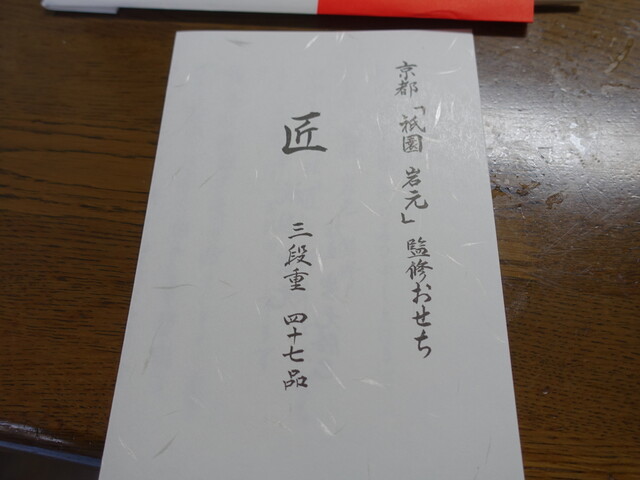 京都「祇園 岩元」監修おせち
匠 三段重 四十七品